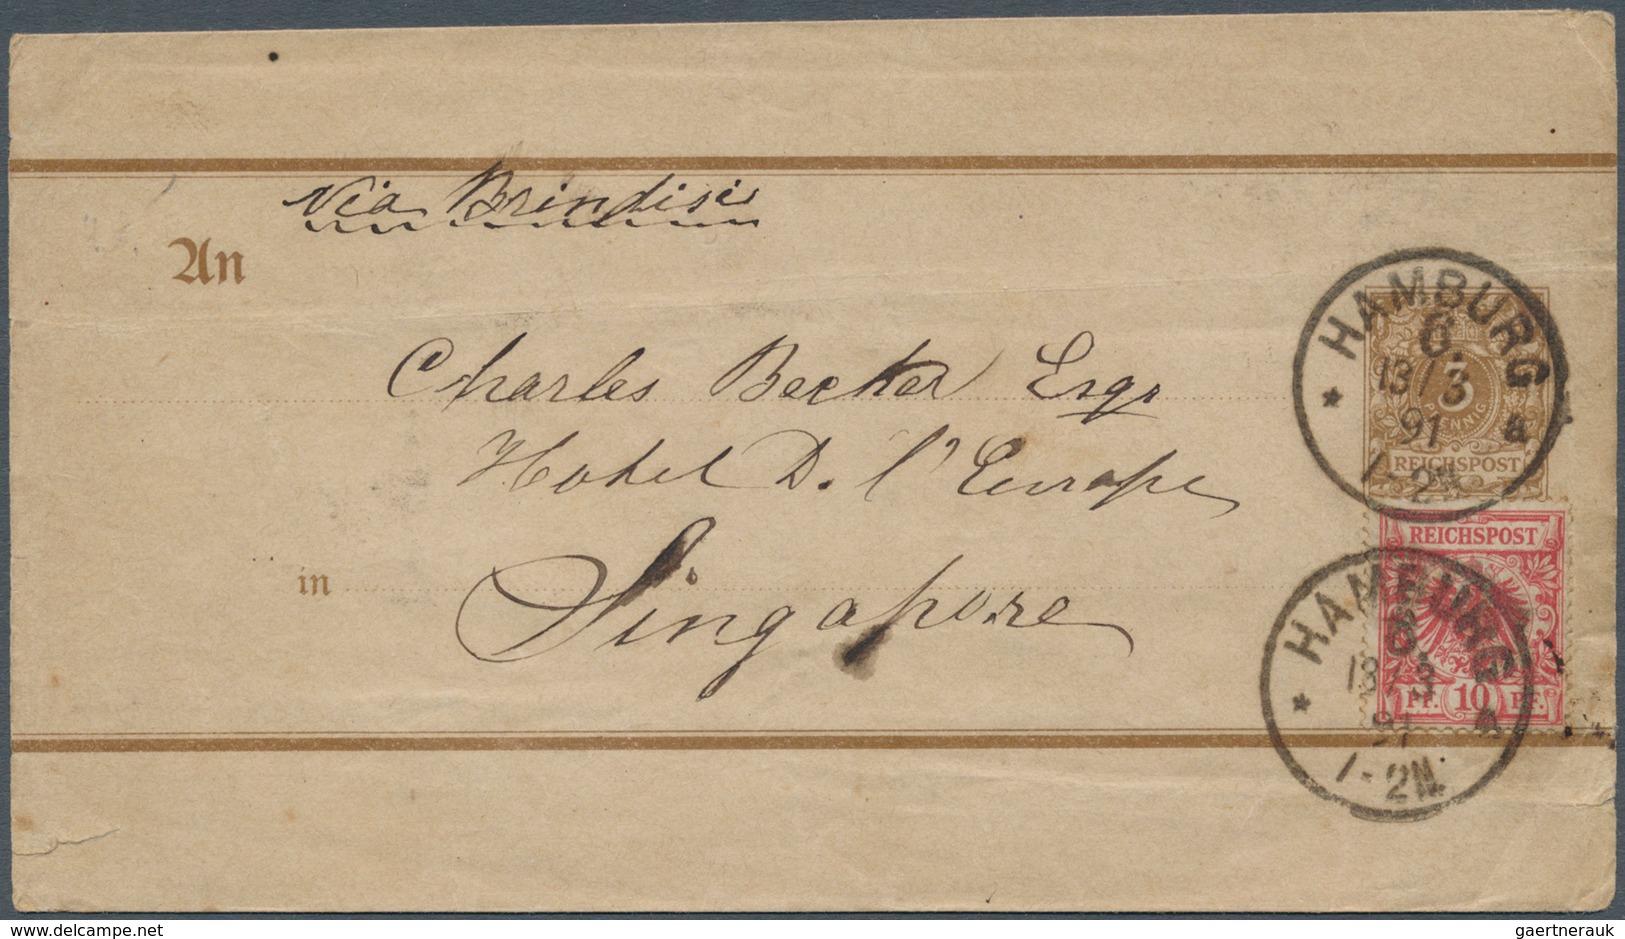 Via Brindisi
An
Charles Becker Esqr
Hotel D. l'Europe
in
Singapore
HAMBURG
6.
13/3
91 a
1-2N.
3
PFENNIG
REICHSPOST
REICHSPOST
PF. 10 PF.
HAMBURG
6.
13/3
91 a
1-2N.
gaertnerauk